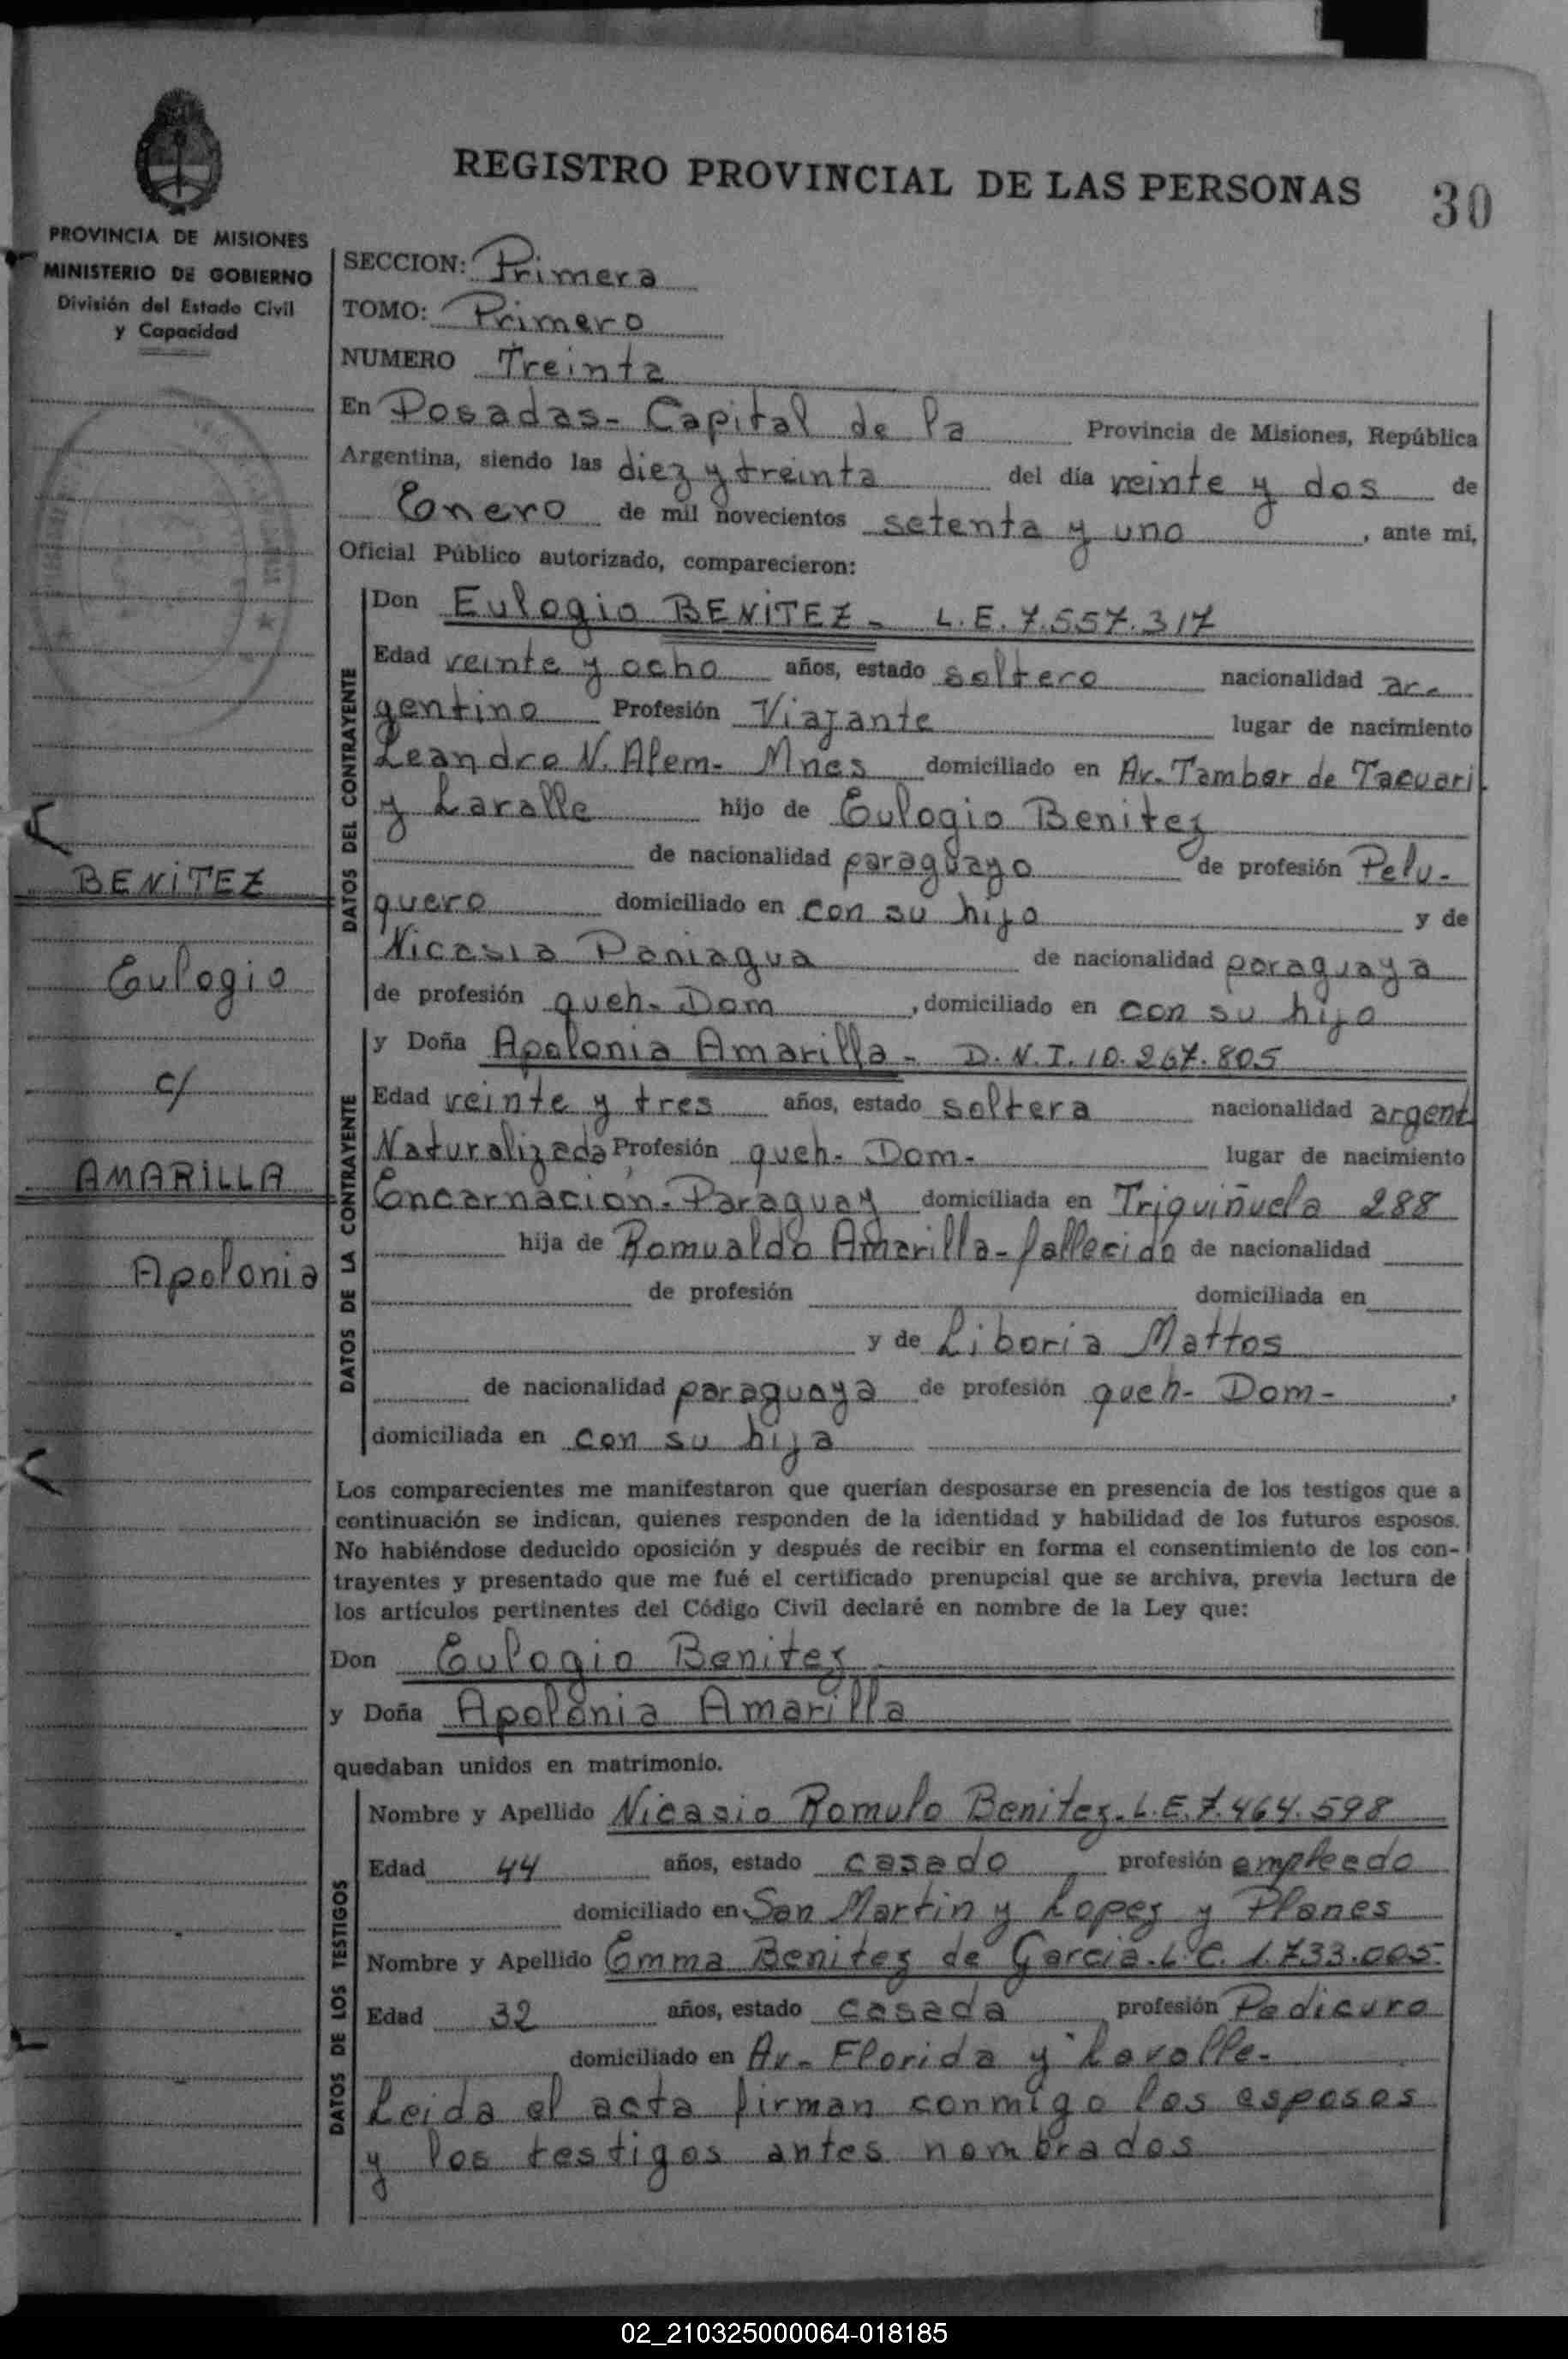 REGISTRO PROVINCIAL DE LAS PERSONAS
30
PROVINCIA DE MISIONES
MINISTERIO DE GOBIERNO
División del Estado Civil
y Capacidad
BENITEZ
Eulogio
c/
AMARILLA
Apolonia
SECCION: Primera
TOMO: Primero
NUMERO Treinta
En Posadas- Capital de la Provincia de Misiones, República
Argentina, siendo las diez y treinta del día veinte y dos de
Enero de mil novecientos setenta y uno, ante mi,
Oficial Público autorizado, comparecieron:
DATOS DEL CONTRAYENTE
Don Eulogio BENITEZ - L.E. 7.557.317
Edad veinte y ocho años, estado soltero nacionalidad ar-
gentino Profesión Viajante lugar de nacimiento
Leandro N. Alem- Mnes domiciliado en Av. Tambor de Tacuari
y Lavalle hijo de Eulogio Benitez
de nacionalidad paraguayo de profesión Pelu-
quero domiciliado en con su hijo y de
Nicasia Paniagua de nacionalidad paraguaya
de profesión queh- Dom, domiciliado en con su hijo
DATOS DE LA CONTRAYENTE
y Doña Apolonia Amarilla - D.N.I. 10.267.805
Edad veinte y tres años, estado soltera nacionalidad argent
Naturalizada Profesión queh- Dom- lugar de nacimiento
Encarnación- Paraguay domiciliada en Triquiñuela 288
hija de Romualdo Amarilla- fallecido de nacionalidad
de profesión domiciliada en
y de Liboria Mattos
de nacionalidad paraguaya de profesión queh- Dom-,
domiciliada en con su hija
Los comparecientes me manifestaron que querían desposarse en presencia de los testigos que a
continuación se indican, quienes responden de la identidad y habilidad de los futuros esposos.
No habiéndose deducido oposición y después de recibir en forma el consentimiento de los con-
trayentes y presentado que me fué el certificado prenupcial que se archiva, previa lectura de
los artículos pertinentes del Código Civil declaré en nombre de la Ley que:
Don Eulogio Benitez
y Doña Apolonia Amarilla
quedaban unidos en matrimonio.
DATOS DE LOS TESTIGOS
Nombre y Apellido Nicasio Romulo Benitez- L.E. 7.464.598
Edad 44 años, estado casado profesión empleado
domiciliado en San Martin y Lopez y Planes
Nombre y Apellido Emma Benitez de Garcia- L.C. 1.733.005-
Edad 32 años, estado casada profesión Pedicura
domiciliado en Av- Florida y Lavalle-
Leida el acta firman conmigo los esposos
y los testigos antes nombrados
02_210325000064-018185